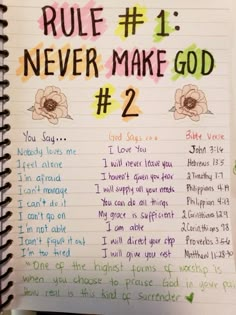 RULE #1:
NEVER MAKE GOD
#2
You Say... God Says... Bible Verse
Nobody loves me I Love You John 3:16
I feel alone I will never leave you Hebrews 13:5
I'm afraid I haven't given you fear 2 Timothy 1:7
I can't manage I will supply all your needs Philippians 4:19
I can't do it You can do all things Philippians 4:13
I can't go on My grace is sufficient 2 Corinthians 12:9
I'm not able I am able 2 Corinthians 9:8
I can't figure it out I will direct your step Proverbs 3:5-6
I'm too tired I will give you rest Matthew 11:28-30
"One of the highest forms of worship is
when you choose to praise God in your pain
how real is this kind of Surrender